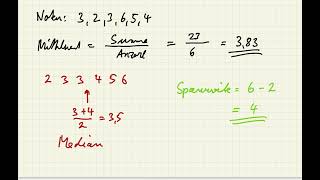 Noten: 3, 2, 3, 6, 5, 4
Mittelwert = Summe / Anzahl = 23 / 6 = 3,83
2 3 3 4 5 6
3+4 / 2 = 3,5
Median
Spannweite = 6 - 2
= 4